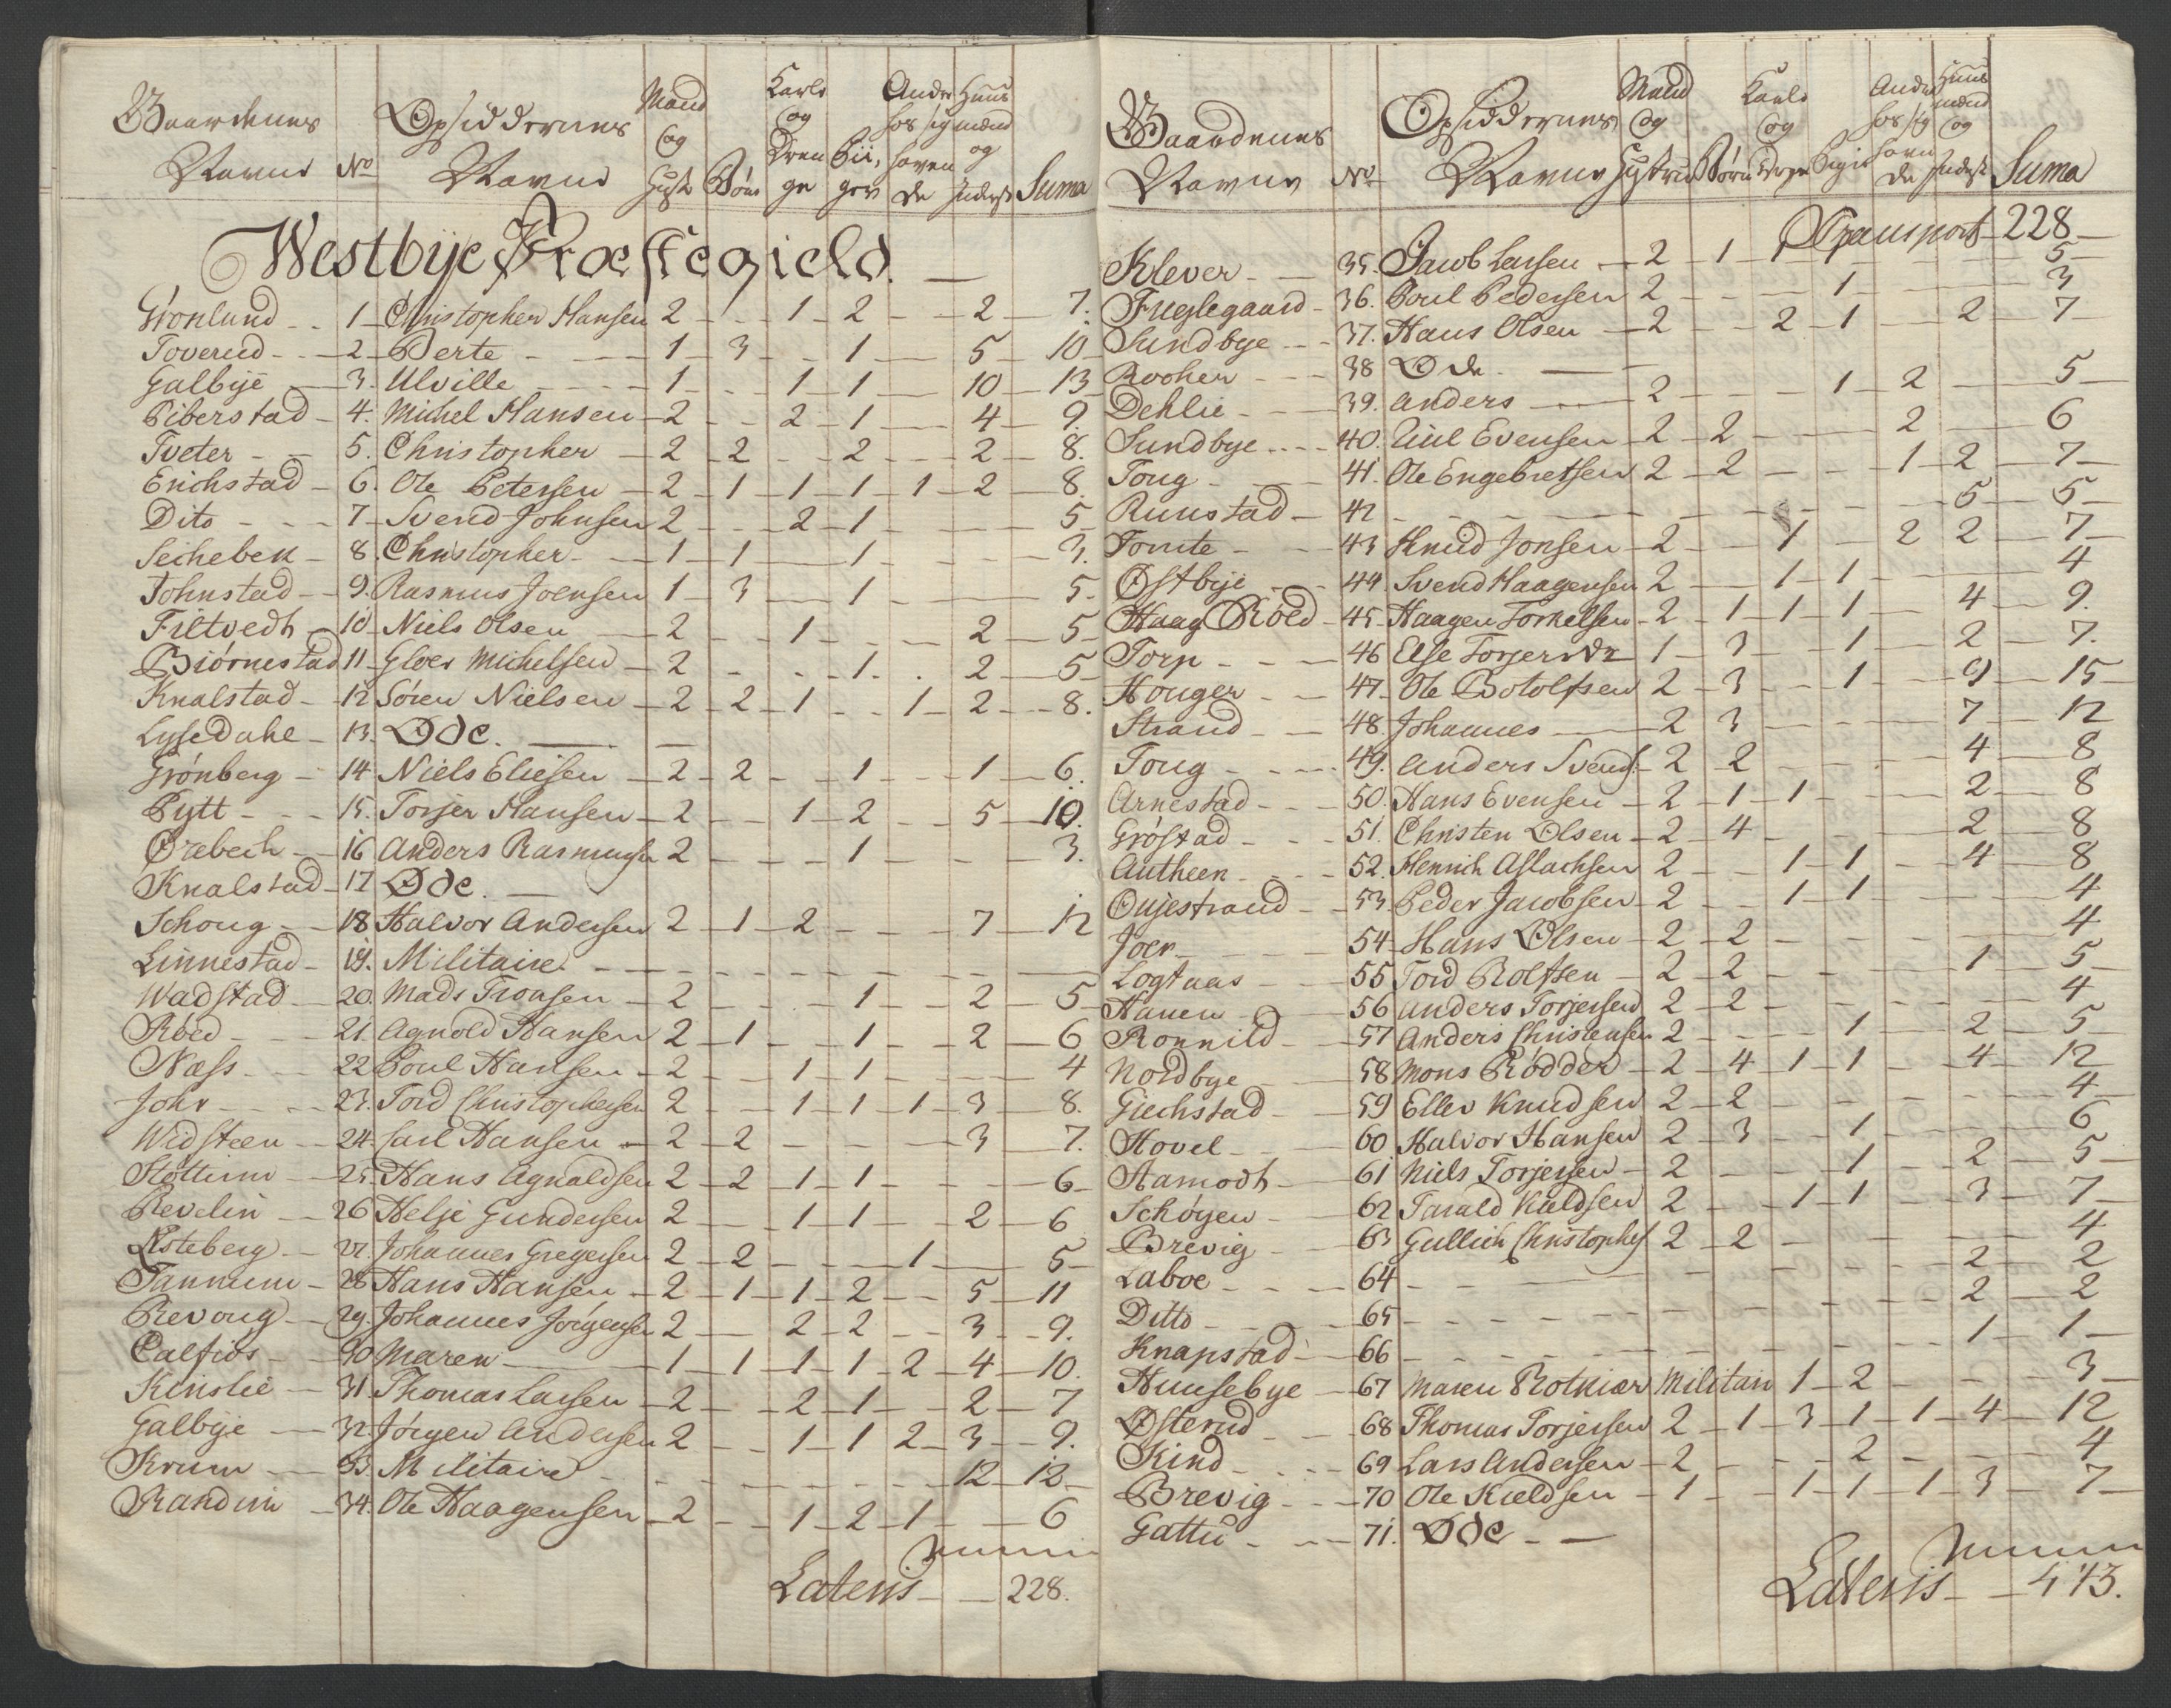 Gaardenes Navne No Opsiddernes Navne Mand og Hust Børn Karle og Drenge Piiger Andre hos sig havende Huusmænd og Inderst Suma
Westbÿe Præstegield. —
Grönlund 1 Christopher Hansen 2 - 1 2 - 2 7.
Toverud 2 Berte 1 3 - 1 - 5 10
Galbÿe 3. Ulville 1 - 1 1 - 10 13
Piberstad 4. Michel Hansen 2 - 2 1 - 4 9.
Tveter 5. Christopher 2 2 - 2 - 2 8.
Erichstad 6. Ole Petersen 2 1 1 1 1 2 8
Dito 7 Svend Johnsen 2 - 2 1 - - 5
Seihebek 8. Christopher 1 1 - 1 - - 3.
Johnstad 9. Rasmus Joensen 1 3 - 1 - - 5
Filtvedt 10 Niels Olsen 2 - 1 - - 2 5
Biörnestad 11 Gloer Michelsen 2 - - 1 - 2 5
Knalstad 12 Sören Nielsen 2 2 1 - 1 2 8.
Lysedahl 13. Øde. —
Grönberg 14 Niels Eliesen 2 2 - 1 - 1 6.
Pytt 15. Torjer Hansen 2 - 1 2 - 5 10.
Ørebech 16 Anders Rasmuss 2 - - 1 - - 3.
Knalstad 17 Øde. —
Schoug 18 Halvor Andersen 2 1 2 - - 7 12
Linnestad 19. Militaire. —
Wadstad 20. Mads Tronsen 2 - - 1 - 2 5
Röed 21. Agnold Hansen 2 1 - 1 - 2 6
Næss 22 Poul Hansen 2 - 1 1 - - 4
Johr 23. Tord Christophersen 2 - 1 1 1 3 8.
Widsteen 24. Carl Hansen 2 2 - - - 3 7.
Stöttum 25. Hans Agnoldsen 2 2 1 1 - - 6
Revelin 26 Helje Gundersen 2 - 1 1 - 2 6
Röteberg 27. Johannes Gregersen 2 2 - - 1 - 5
Tannum 28 Hans Hansen 2 1 1 2 - 5 11
Revoug 29. Johannes Jörgensen 2 - 2 2 - 3 9.
Calfiös 30 Maren 1 1 1 1 2 4 10.
Kinslie 31 Thomas Larsen 2 - 2 1 - 2 7
Galbye 32. Jörgen Andersen 2 - 1 1 2 3 9.
Krum 33. Militaire - - - - - 12 12
Randim 34. Ole Haagensen 2 - 1 2 1 - 6
Lateris — 228.
Gaardenes Navne No Opsiddernes Navne Mand og Hustru Børn Karle og Drenge Piger Andre hos sig havende Huusmænd og Inderst Suma
Transport 228
Klever 35. Jacob Larsen 2 1 1 1 - - 5
Fuglegaard 36. Poul Pedersen 2 - - 1 - - 3
Sundbye 37. Hans Olsen 2 - 2 1 - 2 7
Rocher 38 Øde. —
Dehlie 39. Anders 2 - - 1 2 - 5
Sundbye 40. Juul Evensen 2 2 - - 2 - 6
Toug 41. Ole Engebretsen 2 2 - - 1 2 7
Runstad 42 - - - - - 5 5
Tomte 43 Knud Jonsen 2 - 1 - 2 2 7
Østbye 44. Svend Haagensen 2 - 1 1 - - 4
Haag Röed 45 Haagen Torkelsen 2 1 1 1 - 4 9.
Torp 46 Else Torjersdr 1 3 - 1 - 2 7.
Houger 47 Ole Botolfsen 2 3 - 1 - 9 15
Strand 48. Johannes 2 3 - - - 7 12
Toug 49. Anders Svends. 2 2 - - - 4 8
Arnestad 50. Hans Evensen 2 1 1 - - 2 8
Gröstad 51. Christen Olsen 2 4 - - - 2 8
Autheen 52. Henrich Aslachsen 2 - 1 1 - 4 8
Oujestrand 53. Peder Jacobsen 2 - 1 1 - - 4
Joer 54 Hans Olsen 2 2 - - - - 4
Logtaas 55 Tord Rolfsen 2 2 - - - 1 5
Hauen 56 Anders Torjersen 2 2 - - - - 4
Ronnild 57 Anders Christensen 2 - - 1 - 2 5
Nordbye 58 Mons Rödder 2 4 1 1 - 4 12
Giechstad 59 Eller Knudsen 2 2 - - - - 4
Hovel 60. Halvor Hansen 2 3 - 1 - - 6
Aamodt 61 Niels Torjersen 2 - - 1 - 2 5
Schöyen 62 Tarald Kieldsen 2 - 1 1 - 3 7
Brevig 63 Gullich Christophes 2 2 - - - - 4
Laboe 64 - - - - - 2 2
Ditto 65 - - - - - 2 2
Knapstad 66 - - - - - 1 1
Huusebye 67 Maren Rotkiær Militair 1 2 - - - 3
Østerud 68 Thomas Torjersen 2 1 3 1 1 4 12
Kind 69 Lars Andersen 2 - - 2 - - 4
Brevig 70 Ole Kieldsen 1 - 1 1 1 3 7
Gattu 71. Øde —
Lateris — 473.